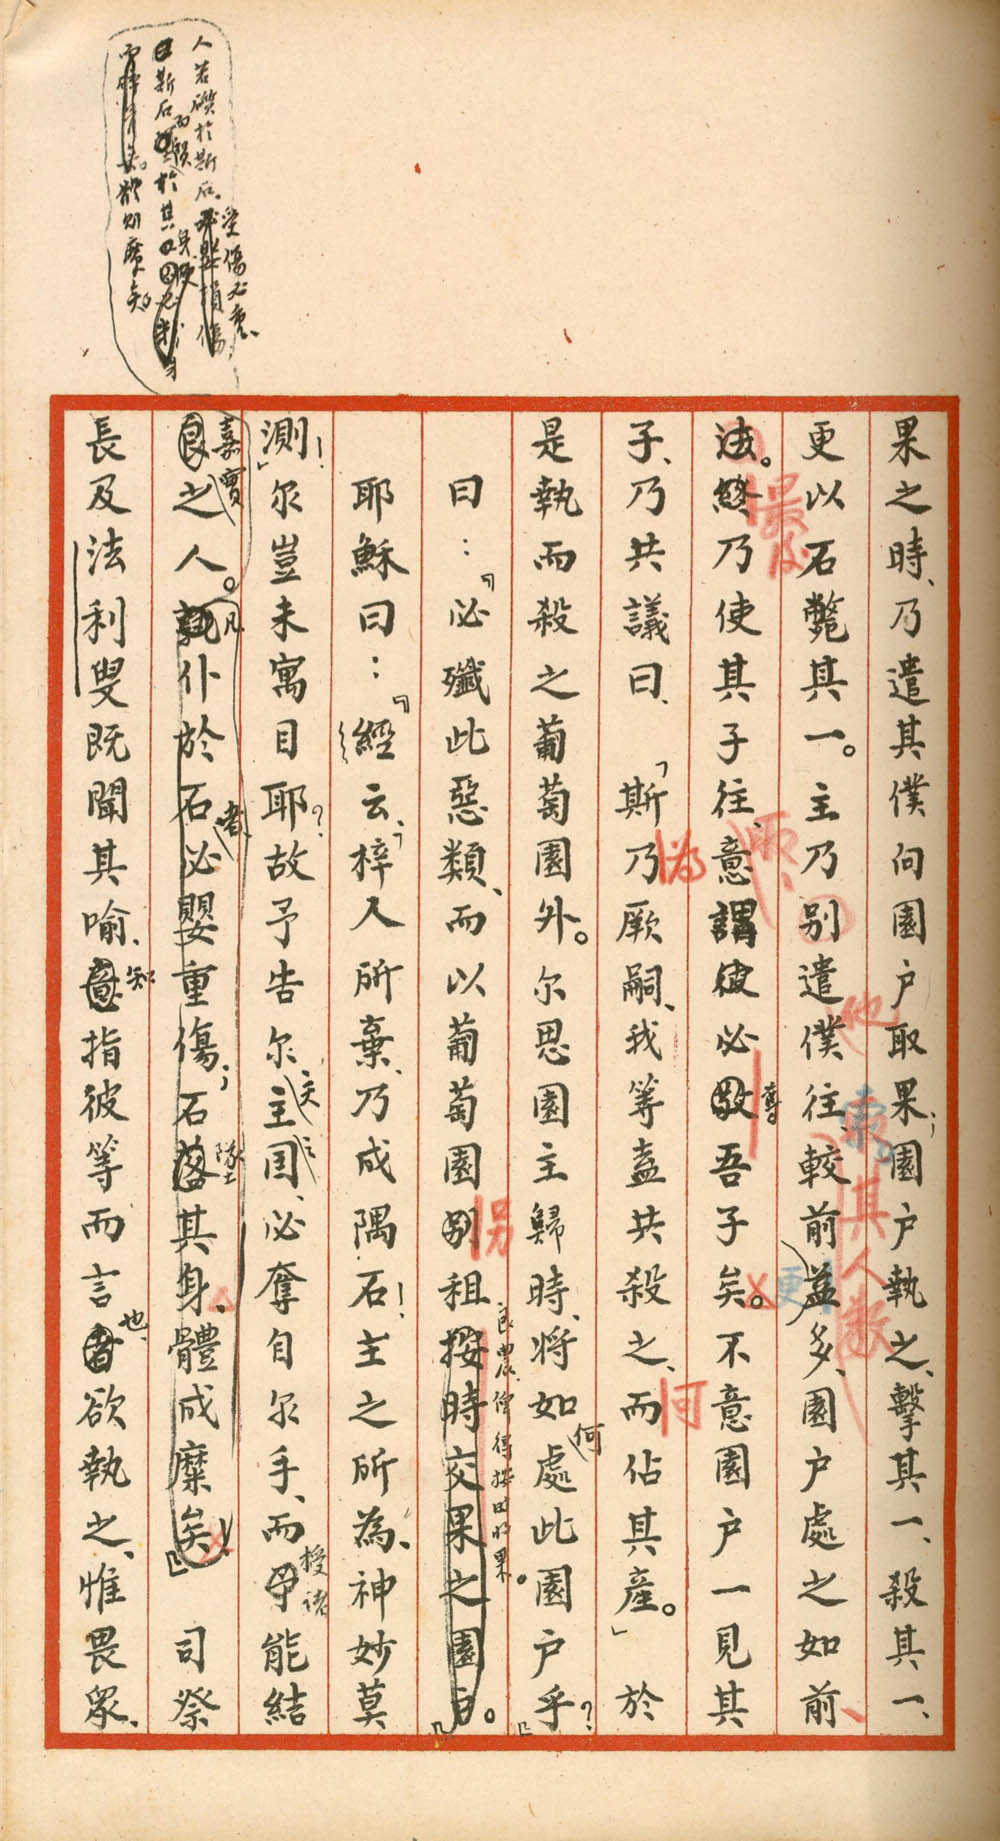 果之時、乃遣其僕向園户取果；園户執之、擊其一、殺其一、
更以石斃其一。主乃别遣僕往、較前益多、園户處之如前、
法。終乃使其子往、意謂彼必敬吾子矣。不意園户一見其
子、乃共議曰、「斯乃厥嗣、我等盍共殺之、而佔其產。」於
是執而殺之葡萄園外。尔思園主歸時、將如何處此園户乎？』
曰：『必殲此惡類、而以葡萄園别租按時交果之園户。』
良農俾得按時納果。
耶穌曰：『經云、「梓人所棄、乃成隅石！主之所為、神妙莫
測！」尔豈未寓目耶？故予告尔、天主之國、必奪自尔手、而授諸能結
嘉實之人。凡仆於石者必嬰重傷；石墜其身、體成糜矣！』司祭
長及法利叟既聞其喻、知指彼等而言也、欲執之、惟畏眾、
最後
願
為
他
索
其人數
更
奪
另
何
人若礩於斯石、受傷必重、
斯石而隕於其身
則糜矣